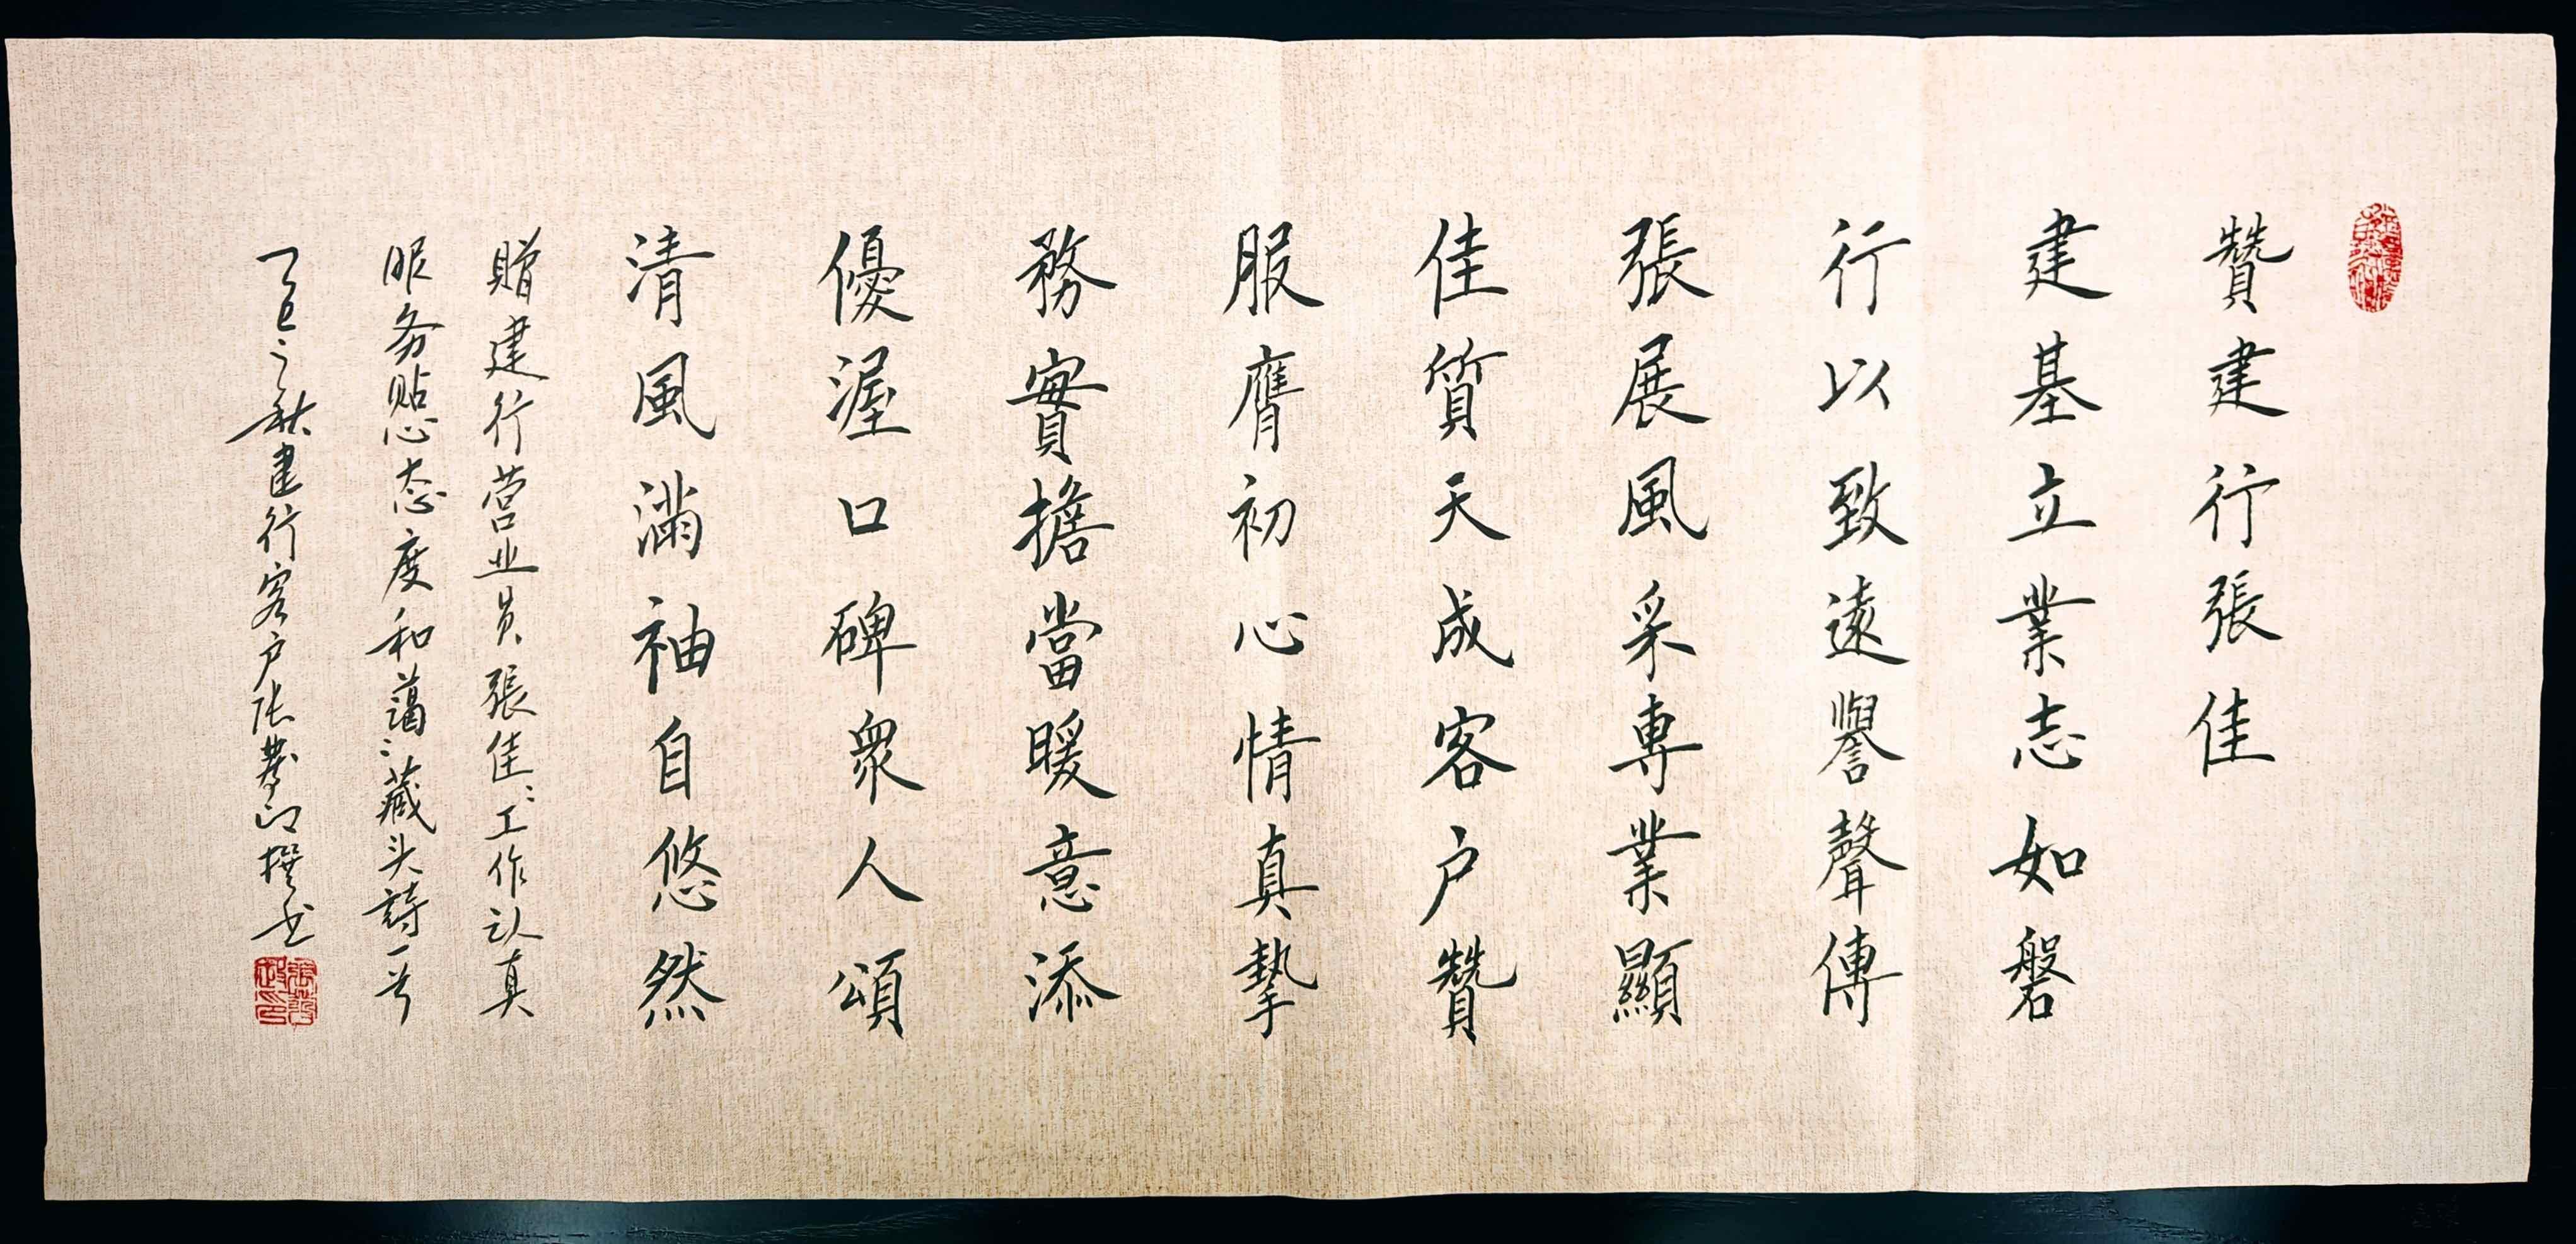 贊建行張佳
建基立業志如磐
行以致遠譽聲傳
張展風采專業顯
佳質天成客户贊
服膺初心情真摯
務實擔當暖意添
優渥口碑衆人頌
清風滿袖自悠然
贈建行营业员張佳:工作认真
服务贴心态度和蔼:藏头詩一首
乙巳之秋建行客户张 撰书